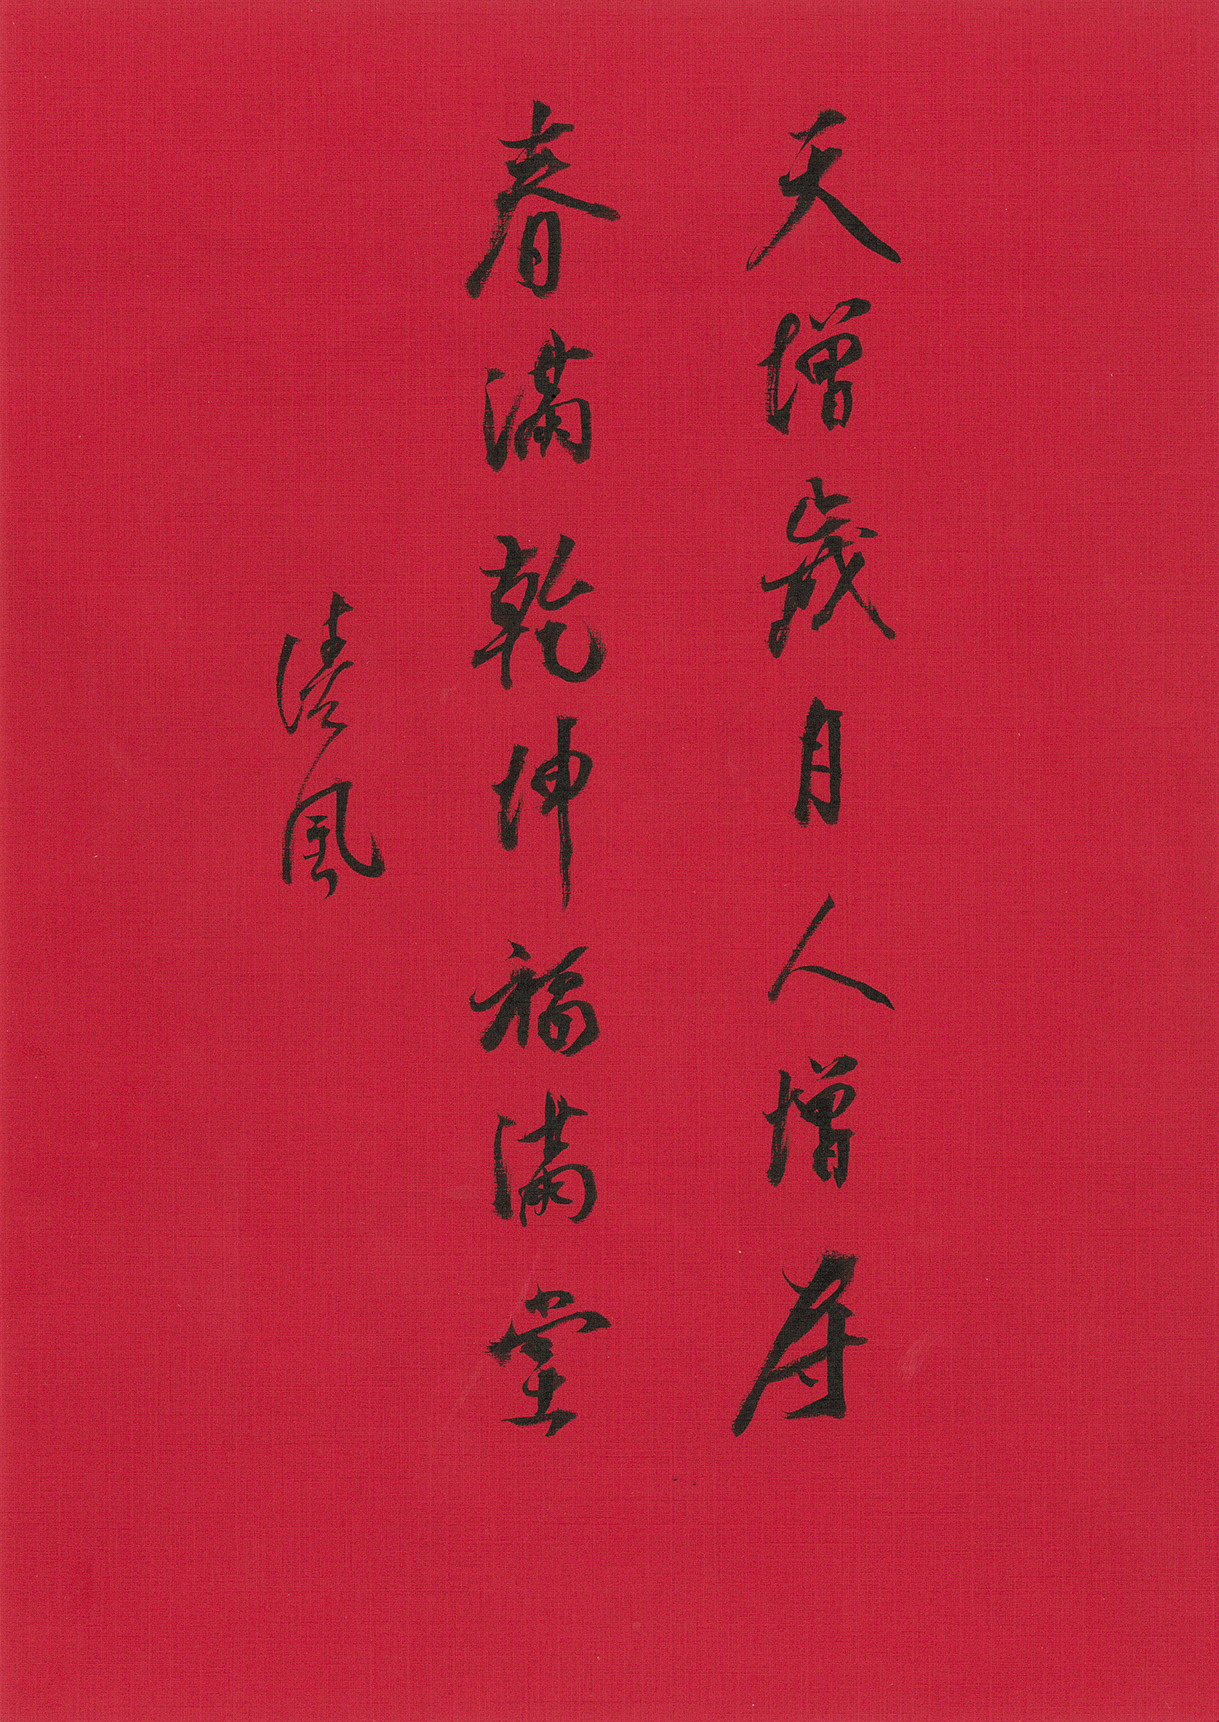 天增歲月人增壽
春滿乾坤福滿堂
清風